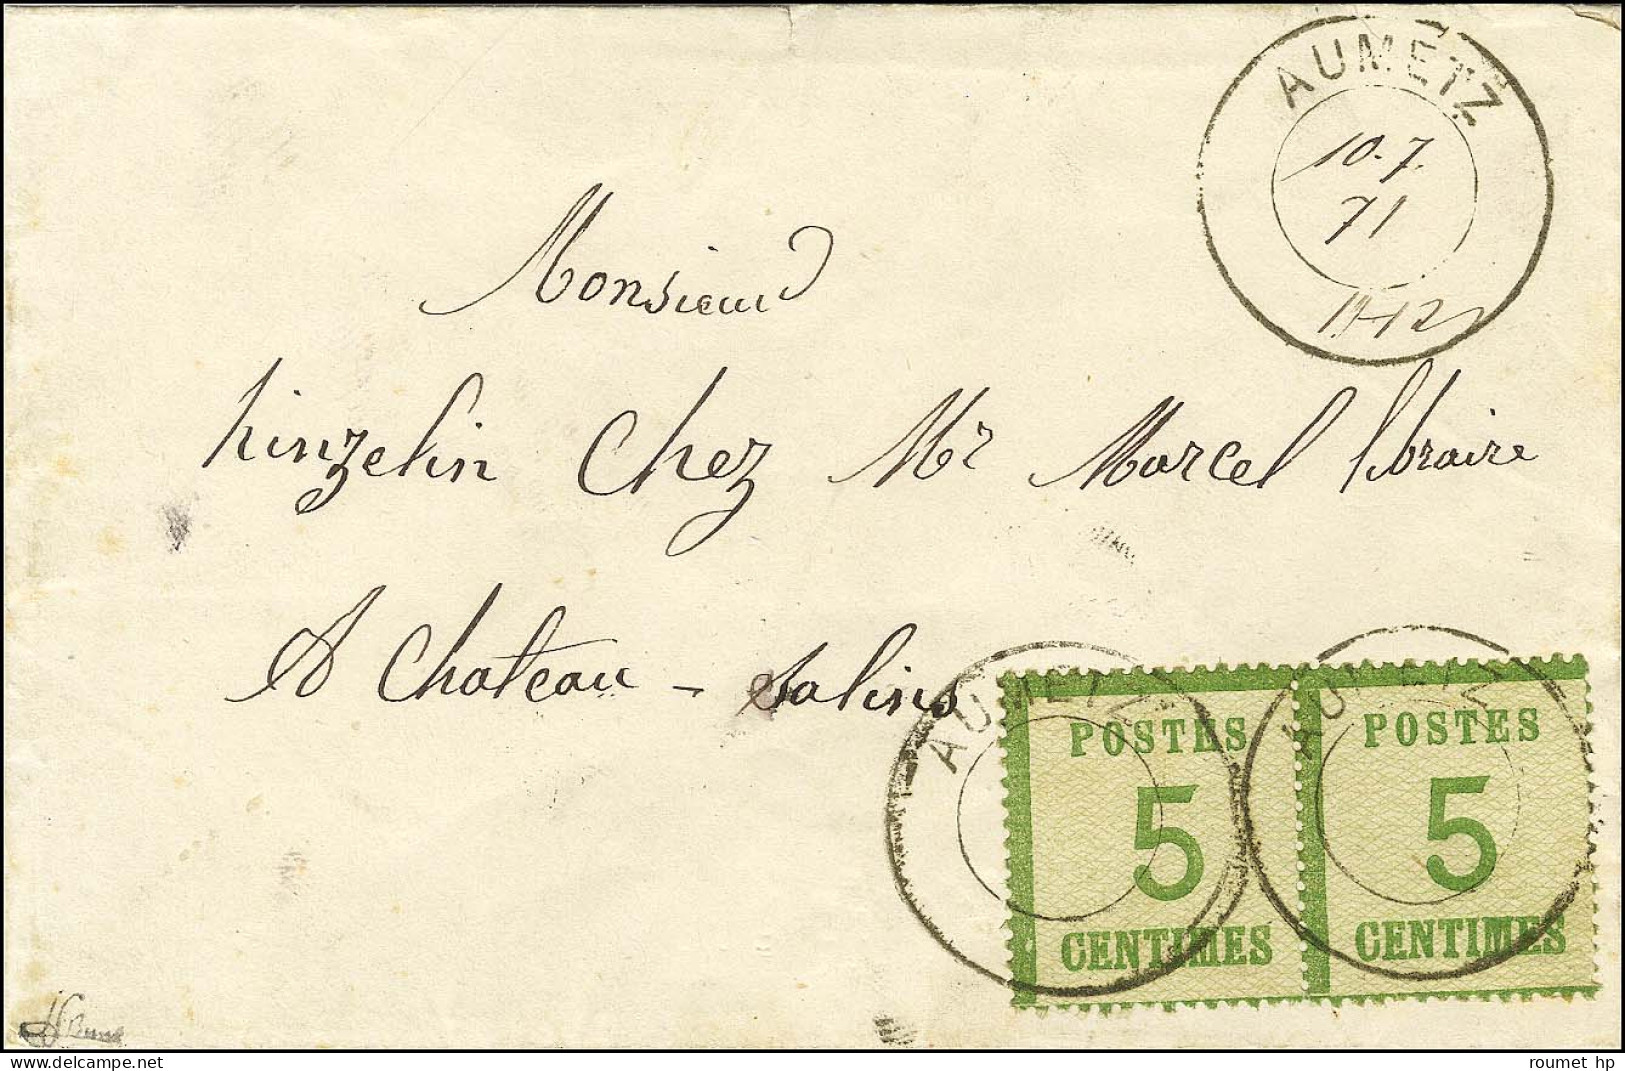 AUMETZ
10.7.
71
11-12
Monsieur
hinzelin Chez Mr Marcel libraire
A Chateau - Salins
AUMETZ
AUMETZ
POSTES
5
CENTIMES
POSTES
5
CENTIMES
delcampe.net
roumet hp